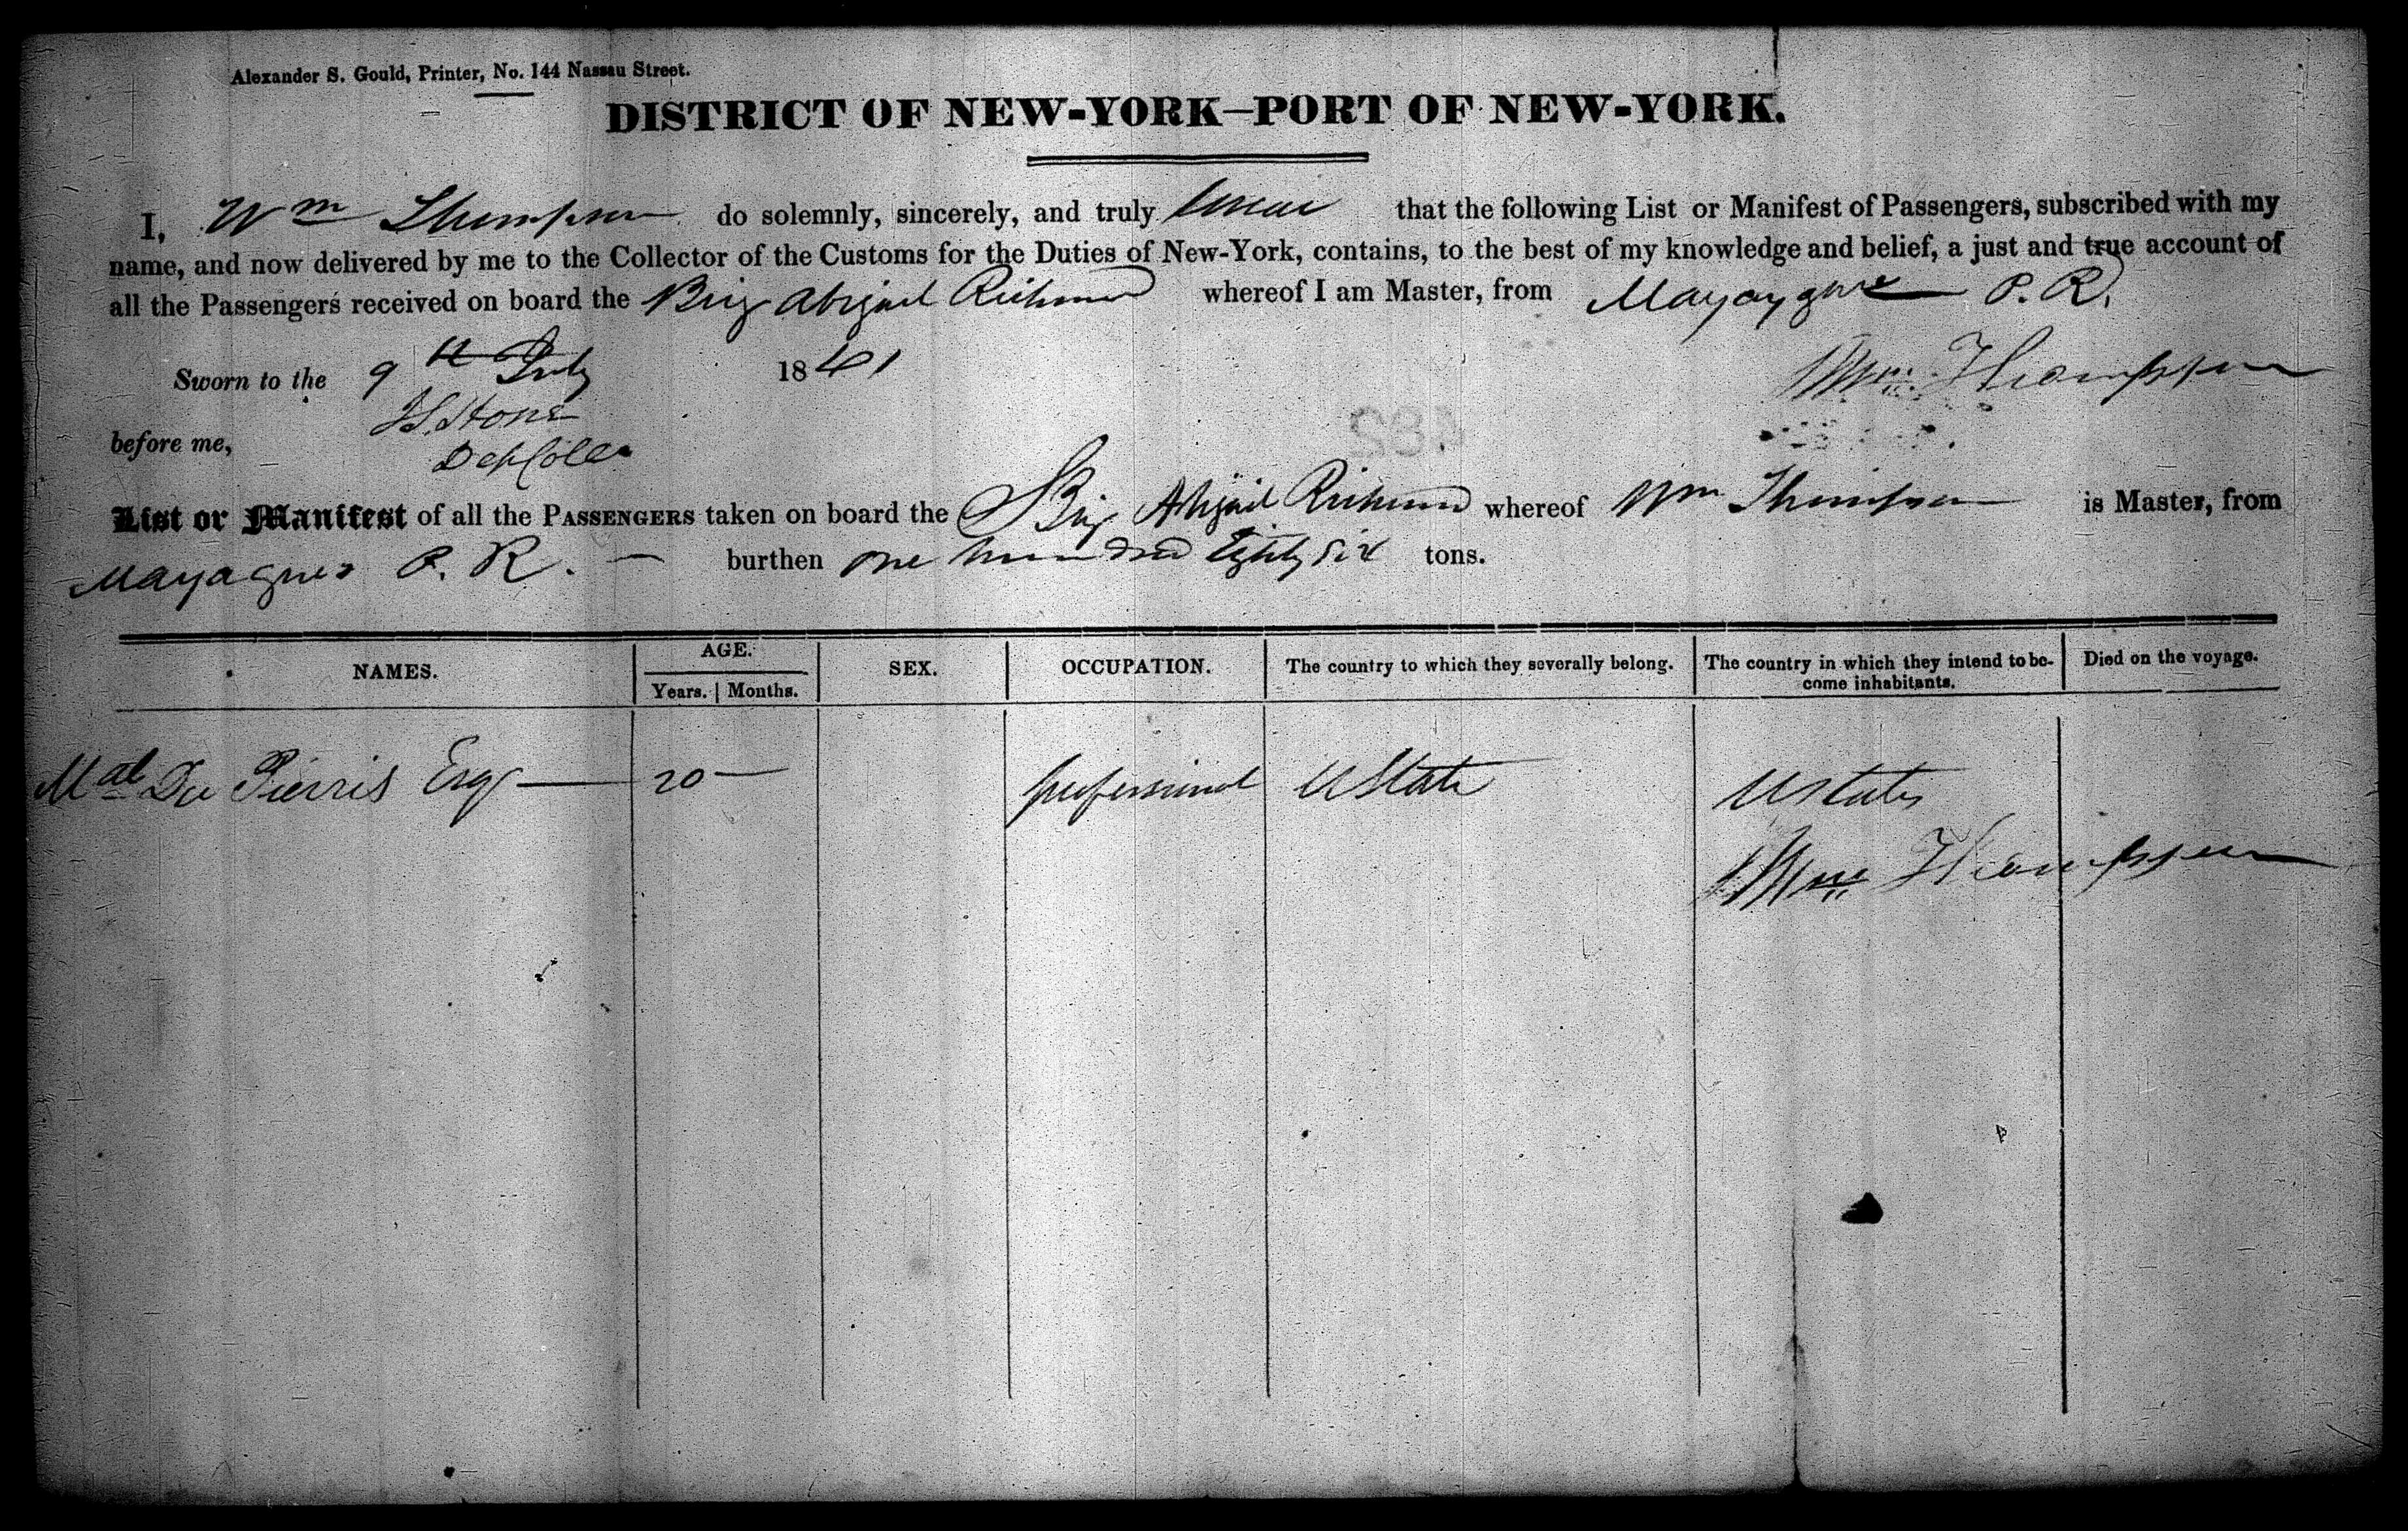 Alexander S. Gould, Printer, No. 144 Nassau Street.
DISTRICT OF NEW-YORK—PORT OF NEW-YORK.
I, Wm Thompson do solemnly, sincerely, and truly swear that the following List or Manifest of Passengers, subscribed with my
name, and now delivered by me to the Collector of the Customs for the Duties of New-York, contains, to the best of my knowledge and belief, a just and true account of
all the Passengers received on board the Brig Abigail Richmond whereof I am Master, from Mayaguez P. R.
Sworn to the 9th July 1841 Wm Thompson
before me, Dep Coll
List or Manifest of all the PASSENGERS taken on board the Brig Abigail Richmond whereof Wm Thompson is Master, from
Mayagues P. R. — burthen one hundred Eighty Six tons.
NAMES. AGE. Years. Months. SEX. OCCUPATION. The country to which they severally belong. The country in which they intend to become inhabitants. Died on the voyage.
Du Pierris Esqr — 20 — professional UState UStates
Wm Thompson